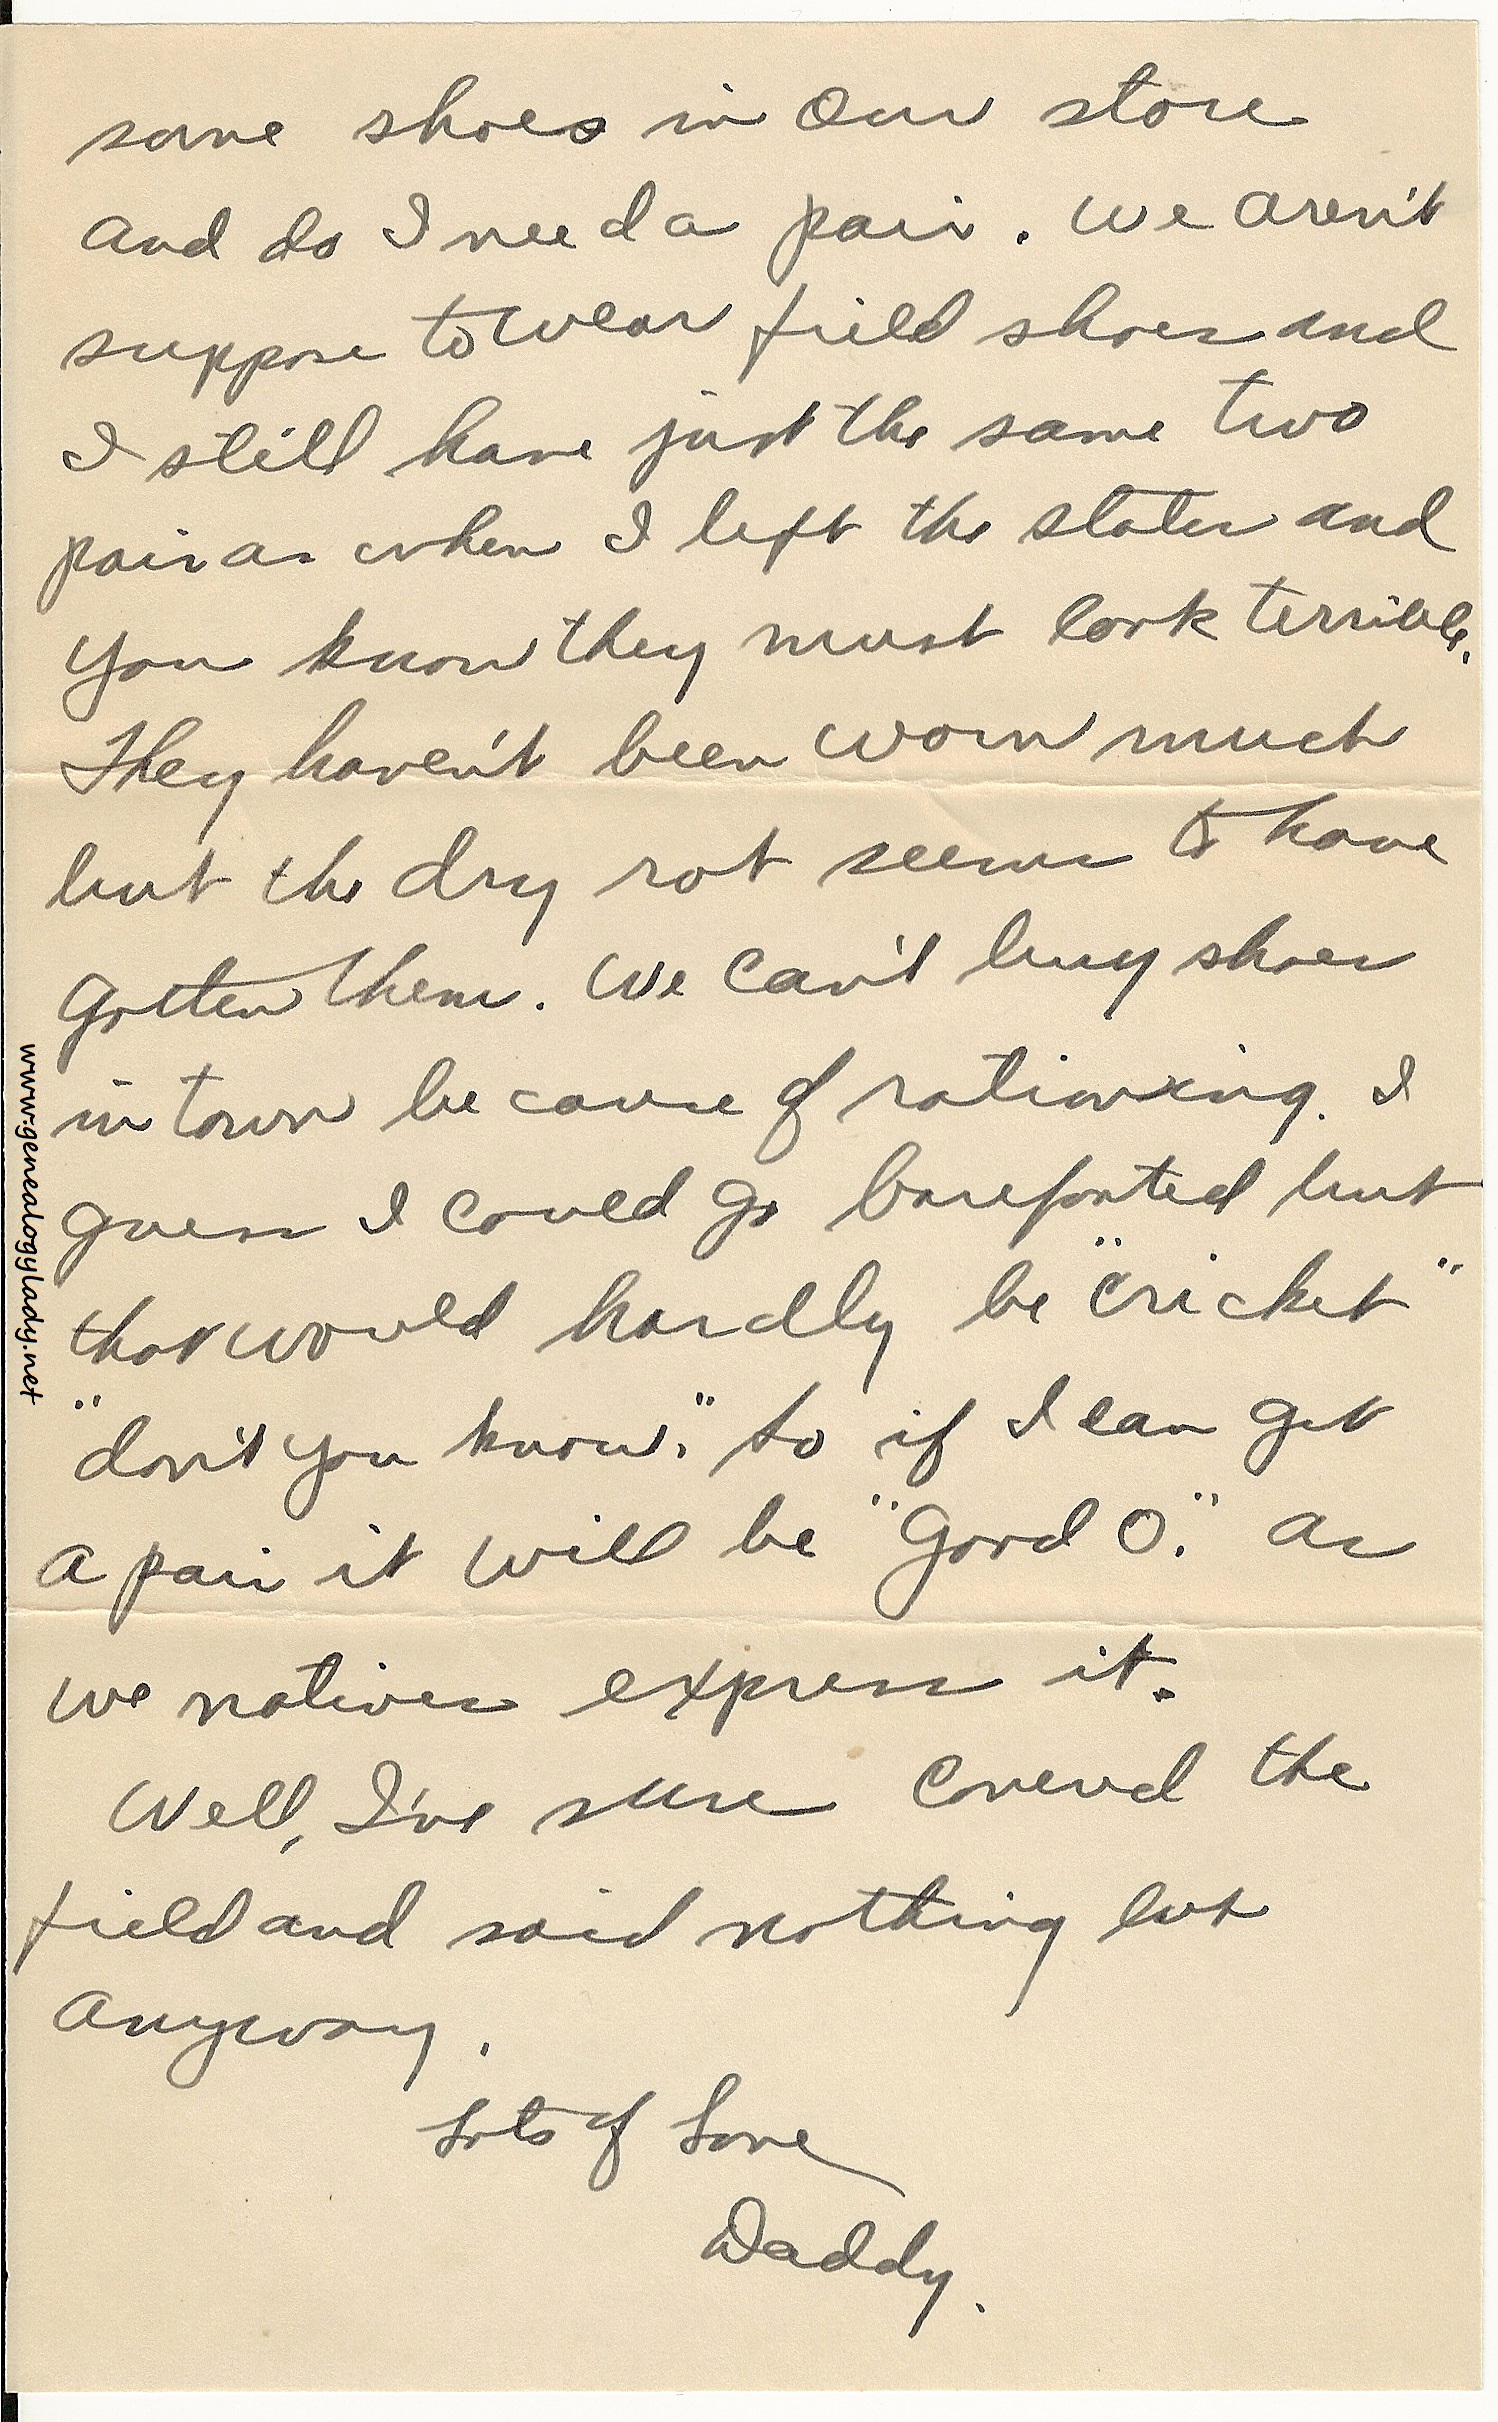 some shoes in our store
and do I need a pair. We aren't
suppose to wear field shoes and
I still have just the same two
pair as when I left the states and
you know they must look terrible.
They haven't been worn much
but the dry rot seems to have
gotten them. We can't buy shoes
in town because of rationing. I
guess I could go barefooted but
that would hardly be "cricket"
"don't you know." So if I can get
a pair it will be "Good O." as
we natives express it.
Well, I've sure covered the
field and said nothing but
anyway.
Lots of Love
Daddy.
www.genealogylady.net